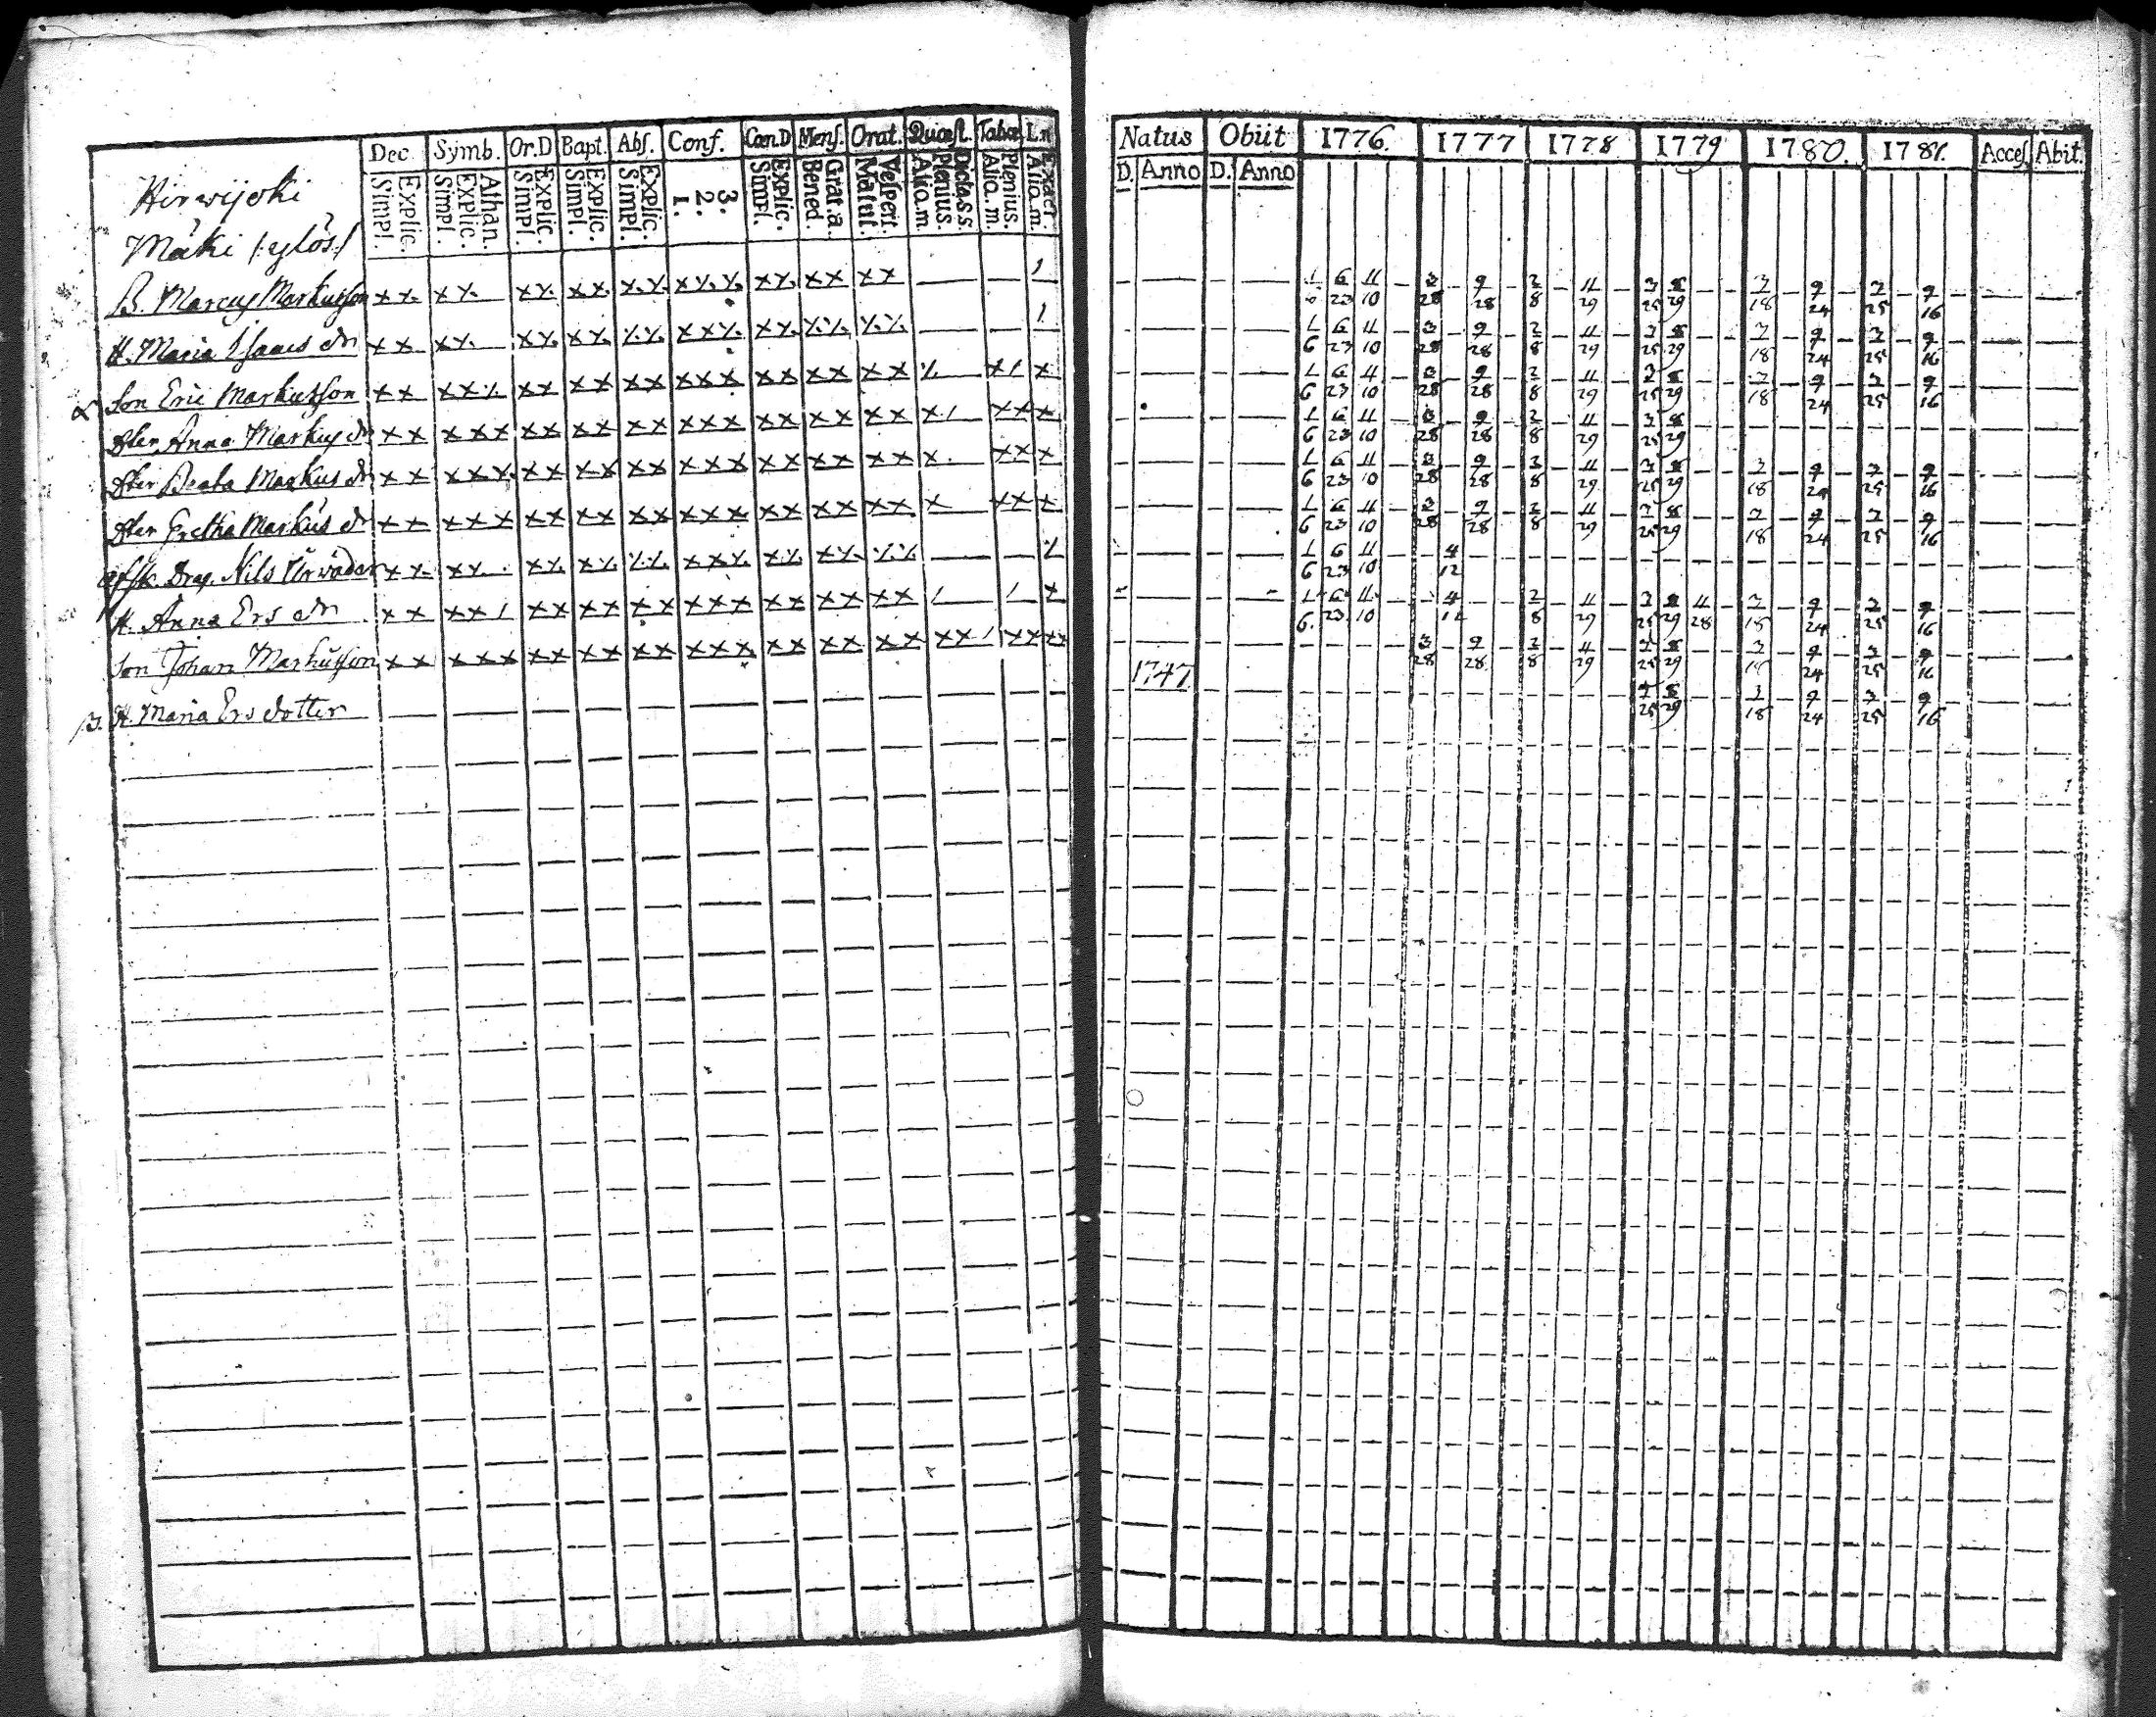 Dec. Symb. Or.D Bapt. Abſ. Conf. Cœn.D Menſ. Orat. Quæſt. Tabœ L.n
Simpl. Explic. Simpl. Explic. Athan. Simpl. Explic. Simpl. Explic. Simpl. Explic. 1. 2. 3. Simpl. Explic. Bened. Grat.a. Matut. Veſpert. Aliq.m Plenius. Dicta.s.s. Aliq.m. Plenius. Aliq.m. Exact.
Hirwijoki
Mäki /:ylös:/
B. Marcus Markusson
H. Maria Isaacs dr
Son Eric Markusson
Dter Anna Markus dr
Dter Beata Markus dr
Dter Gretha Markus dr
afsk. Drag. Nils
H. Anna Ers dr
Son Johan Markusson
H. Maria Ers dotter
Natus Obiit 1776. 1777 1778 1779 1780. 1781. Acceſ Abit.
D. Anno D. Anno
1 6 11 3 9 2 11 3 8 3 9 3 9
23 10 28 28 8 29 25 29 18 24 25 16
1 6 11 3 9 2 11 3 8 3 9 3 9
6 23 10 28 28 8 29 25 29 18 24 25 16
1 6 11 3 9 2 11 3 8 3 9 3 9
6 23 10 28 28 8 29 25 29 18 24 25 16
1 6 11 3 9 2 11 3 8
6 23 10 28 28 8 29 25 29
1 6 11 3 9 2 11 3 8 3 9 3 9
6 23 10 28 28 8 29 25 29 18 24 25 16
1 6 11 3 9 2 11 3 8 3 9 3 9
6 23 10 28 28 8 29 25 29 18 24 25 16
1 6 11 4
6 23 10 12
1 6 11 4 2 11 3 8 11 3 9 3 9
6. 23 10 12 8 29 25 29 28 18 24 25 16
3 9 2 11 3 8 3 9 3 9
1747 28 28 8 29 25 29 18 24 25 16
3 8 3 9 3 9
25 29 18 24 25 16